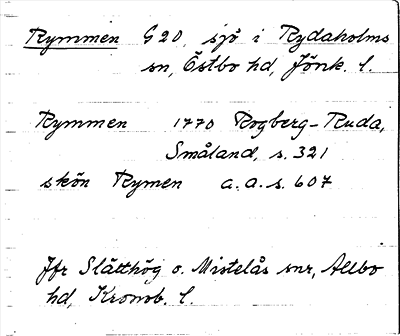 Rymmen G 20, sjö i Rydaholms
sn, Östbo hd, Jönk. l.
Rymmen 1770 Rogberg-Ruda,
Småland, s. 321
skön Rymen a.a.s. 607
Jfr Slätthög o. Mistelås snr, Allbo
hd, Kronob. l.